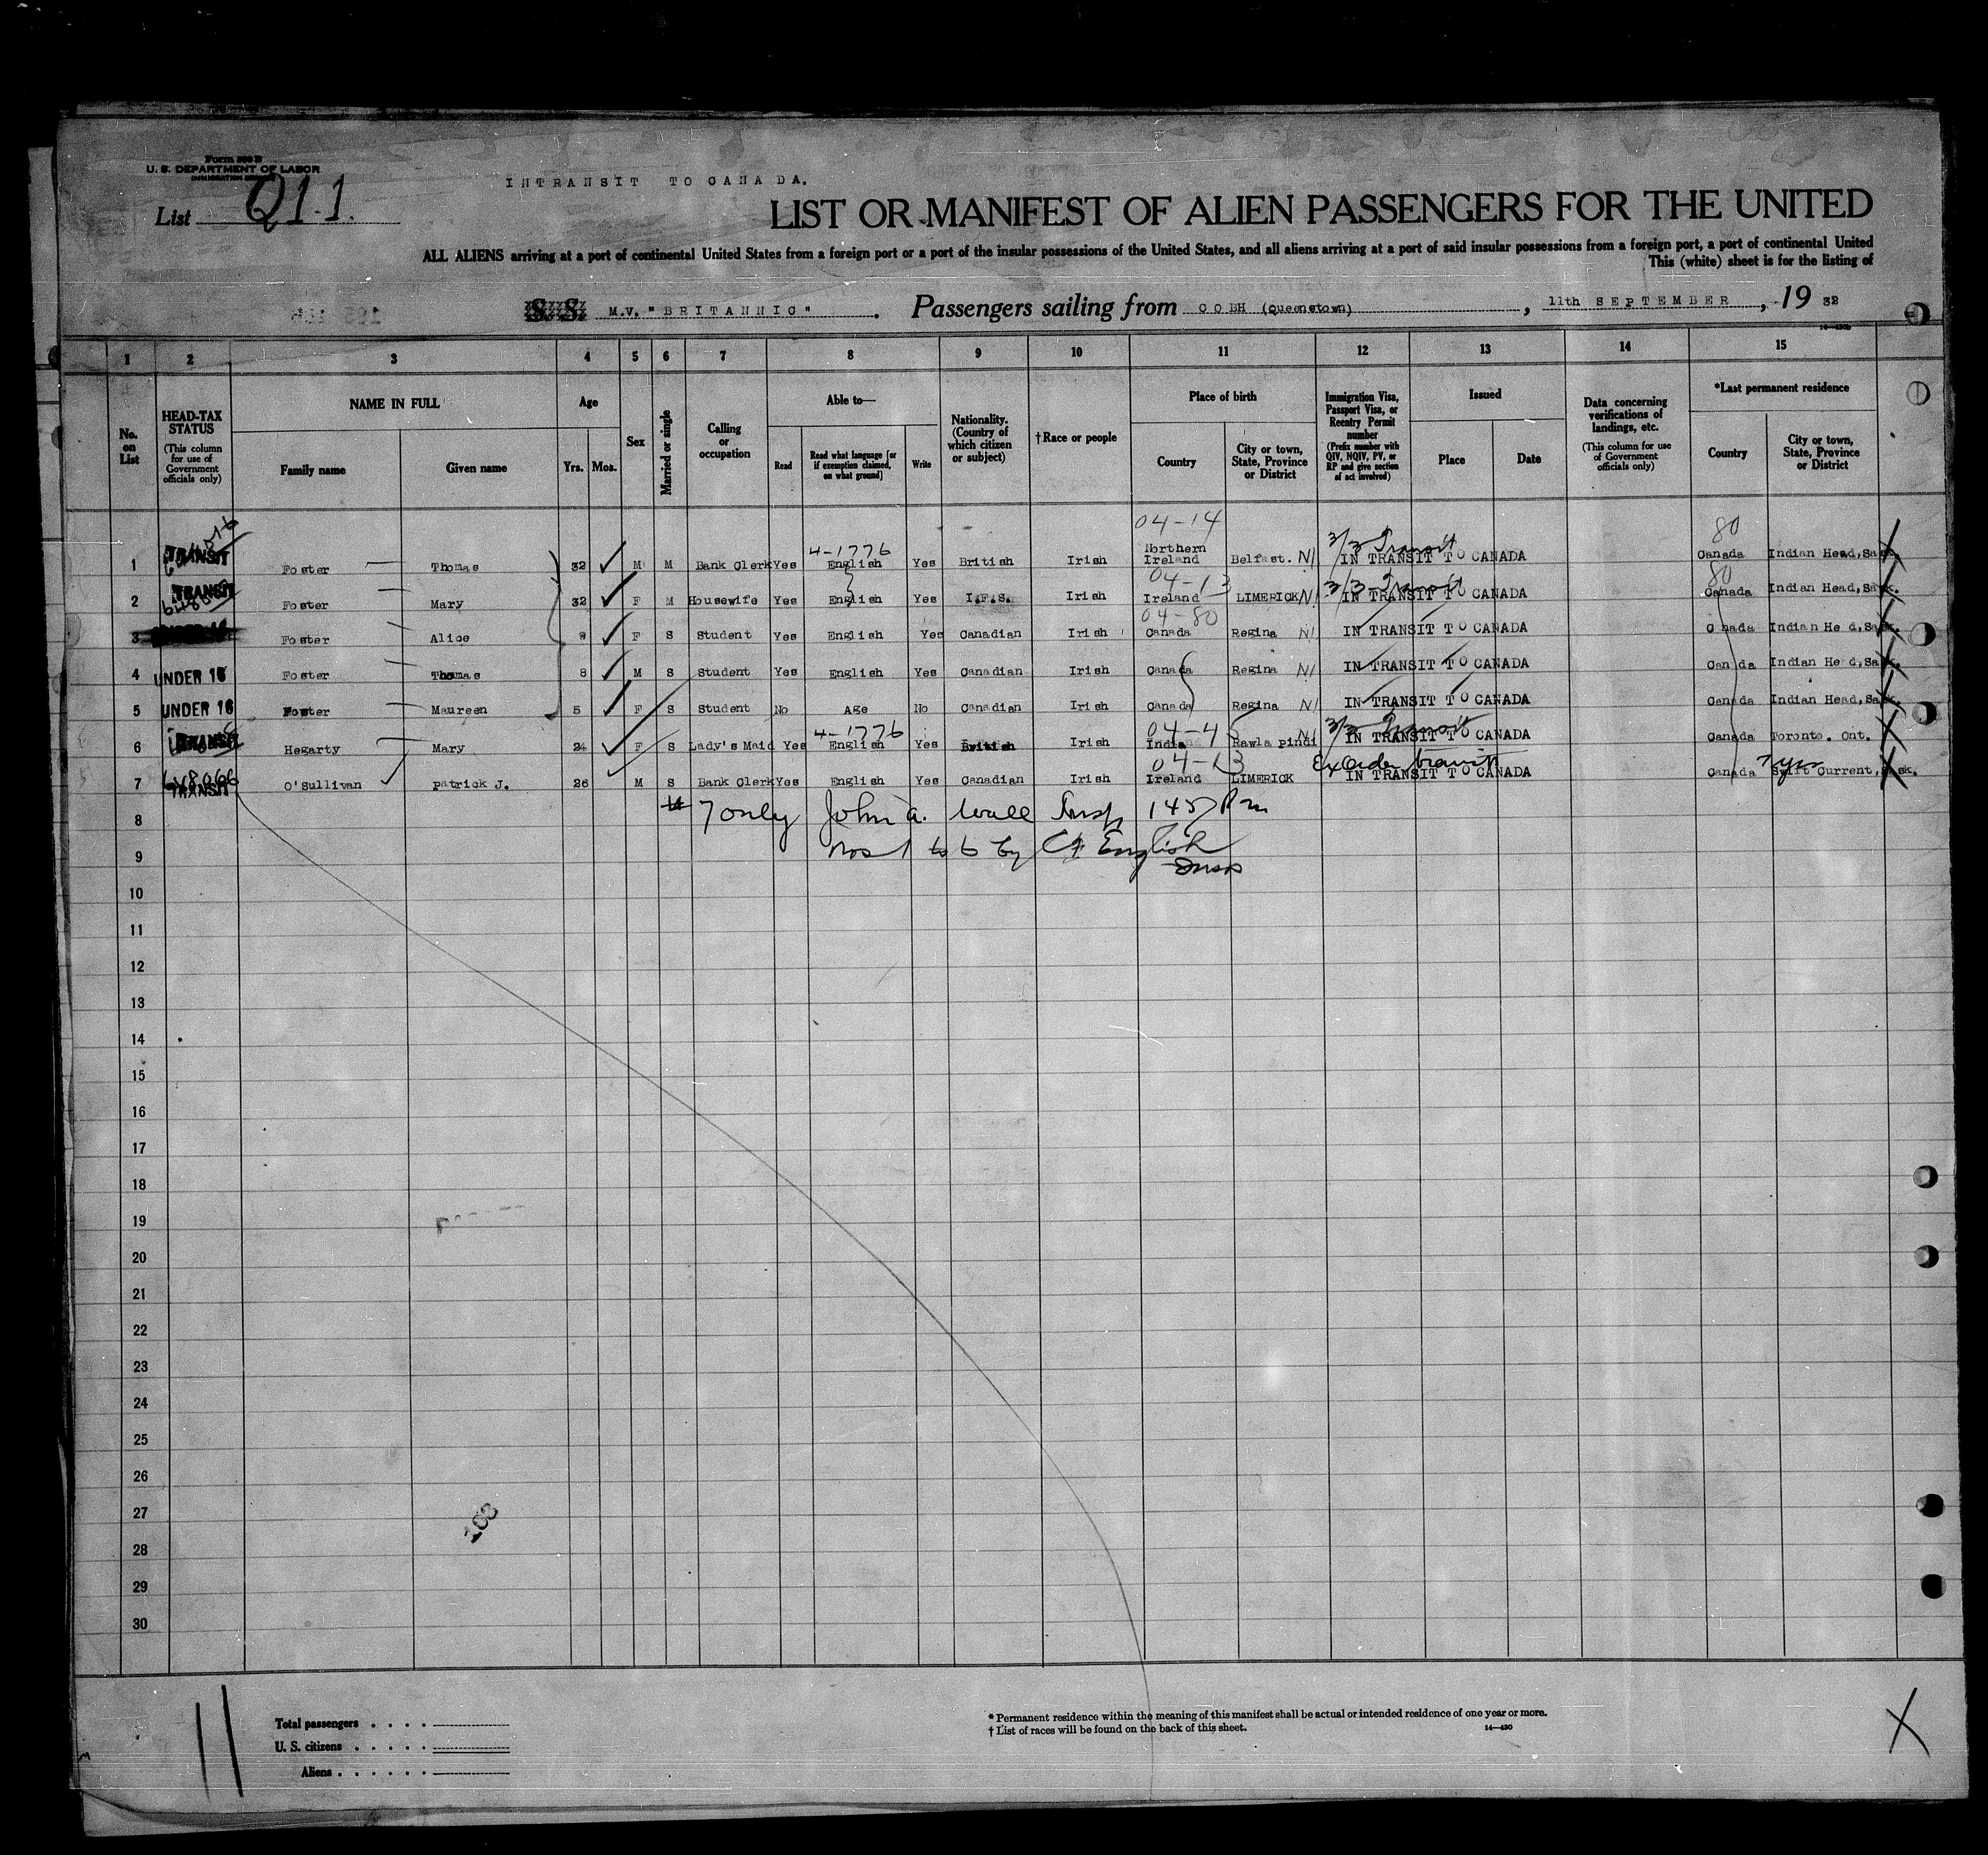 Form 500 B
U. S. DEPARTMENT OF LABOR
IMMIGRATION SERVICE
List Q1-1.
INTRANSIT TO CANADA.
LIST OR MANIFEST OF ALIEN PASSENGERS FOR THE UNITED
ALL ALIENS arriving at a port of continental United States from a foreign port or a port of the insular possessions of the United States, and all aliens arriving at a port of said insular possessions from a foreign port, a port of continental United
This (white) sheet is for the listing of
S. S. M.V. "BRITANNIC". Passengers sailing from COBH (Queenstown), 11th SEPTEMBER, 19 32
1 2 3 4 5 6 7 8 9 10 11 12 13 14 15
No. on List
HEAD-TAX STATUS (This column for use of Government officials only)
NAME IN FULL Family name Given name
Age Yrs. Mos.
Sex
Married or single
Calling or occupation
Able to— Read Read what language [or if exemption claimed, on what ground] Write
Nationality. (Country of which citizen or subject)
†Race or people
Place of birth Country City or town, State, Province or District
Immigration Visa, Passport Visa, or Reentry Permit number (Prefix number with QIV, NQIV, PV, or RP and give section of act involved)
Issued Place Date
Data concerning verifications of landings, etc. (This column for use of Government officials only)
*Last permanent residence Country City or town, State, Province or District
04-14 80
4-1776 3/3 Transit
1 TRANSIT Foster Thomas 32 M M Bank Clerk Yes English Yes British Irish Northern Ireland Belfast. N/ IN TRANSIT TO CANADA Canada Indian Head, Sask.
04-13 3/3 Transit 80
2 TRANSIT Foster Mary 32 F M Housewife Yes English Yes I.F.S. Irish Ireland LIMERICK N/ IN TRANSIT TO CANADA Canada Indian Head, Sask.
04-80
3 Foster Alice 9 F S Student Yes English Yes Canadian Irish Canada Regina N/ IN TRANSIT TO CANADA Canada Indian He d, Sask.
4 UNDER 16 Foster Thomas 8 M S Student Yes English Yes Canadian Irish Canada Regina N/ IN TRANSIT TO CANADA Canada Indian He d, Sask.
5 UNDER 16 Foster Maureen 5 F S Student No Age No Canadian Irish Canada Regina N/ IN TRANSIT TO CANADA Canada Indian Head, Sask.
4-1776 04-45 3/3 Transit
6 TRANSIT Hegarty Mary 24 F S Lady's Maid Yes English Yes British Irish India Rawla pindi N/ IN TRANSIT TO CANADA Canada Toronto. Ont.
04-13 transit 7 yrs
7 648066 TRANSIT O'Sullivan Patrick J. 26 M S Bank Clerk Yes English Yes Canadian Irish Ireland LIMERICK IN TRANSIT TO CANADA Canada Swift Current, Sask.
8 7 only John A. Wall Insp 145 Pm
9 nos 1 to 6 by CF English
Insp
10
11
12
13
14
15
16
17
18
19
20
21
22
23
24
25
26
27
28
29
30
Total passengers
U. S. citizens
Aliens
* Permanent residence within the meaning of this manifest shall be actual or intended residence of one year or more.
† List of races will be found on the back of this sheet. 14—430